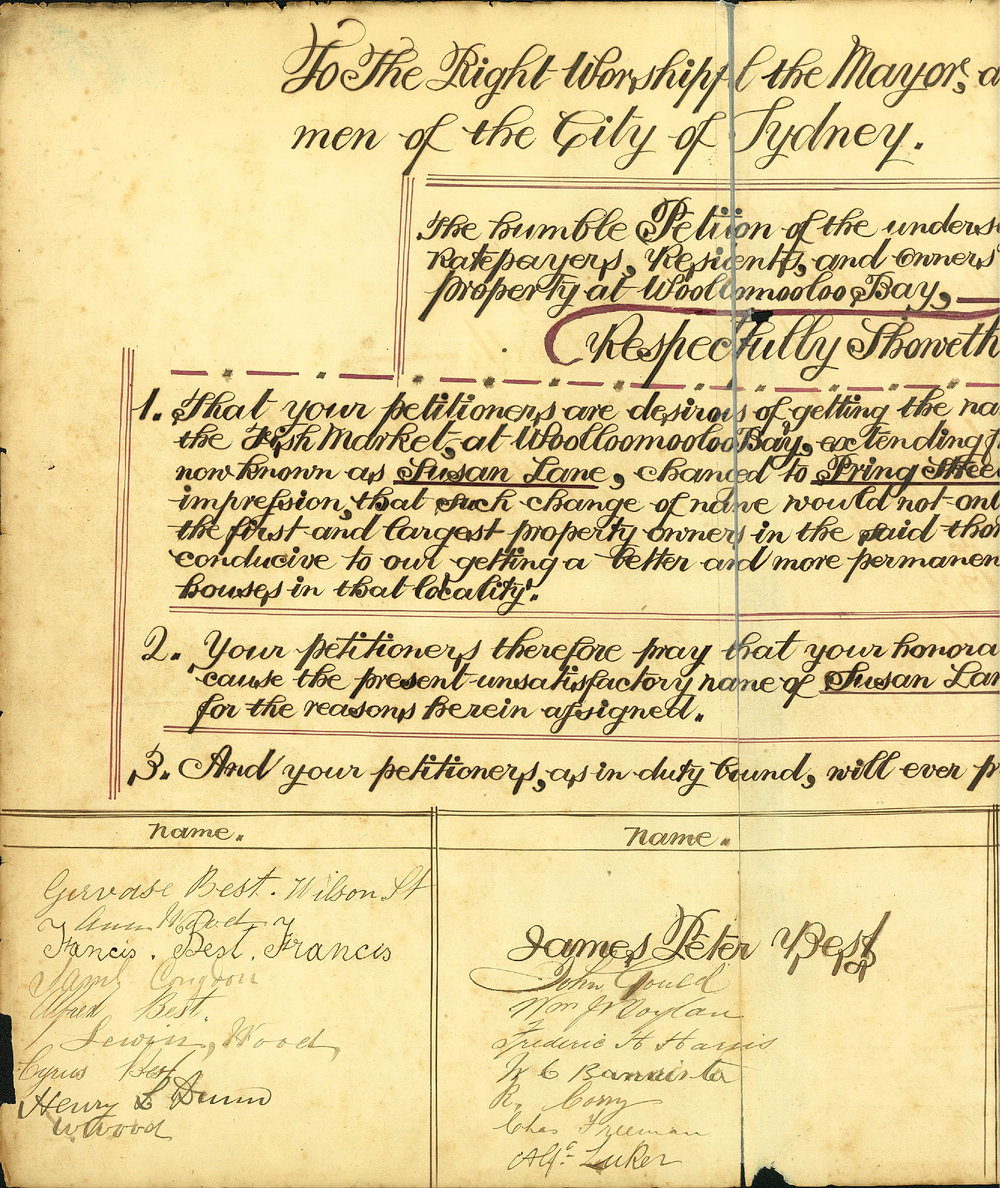 To The Right Worshipf l the Mayor, a
men of the City of Sydney.
The humble Petiion of the unders
Ratepayers, Resients, and owners
property at Woolloomooloo Bay,
Respectfully Showeth
1. That your petitioners are desirous of getting the na
the Fish Market, at Woolloomooloo Bay, extending f
now known as Susan Lane, changed to Pring Stree
impression, that such change of name would not onl
the first and largest property owners in the said thor
conducive to our getting a better and more permanen
houses in that locality.
2. Your petitioners therefore pray that your honora
cause the present unsatisfactory name of Susan Lan
for the reasons herein assigned.
3. And your petitioners, as in duty bound, will ever p
name. name.
Gervase Best. Wilson St
Ann Wood
Francis. Best. Francis
Saml Congdon
Alfred Best.
Lewin, Wood,
Cyrus Best
Henry L Dunn
W Wood
James Peter Best
John Gould
Wm J Moylan
Frederic H Harris
W C Bannister
R. Corry
Chas Freeman
Alfd Luker